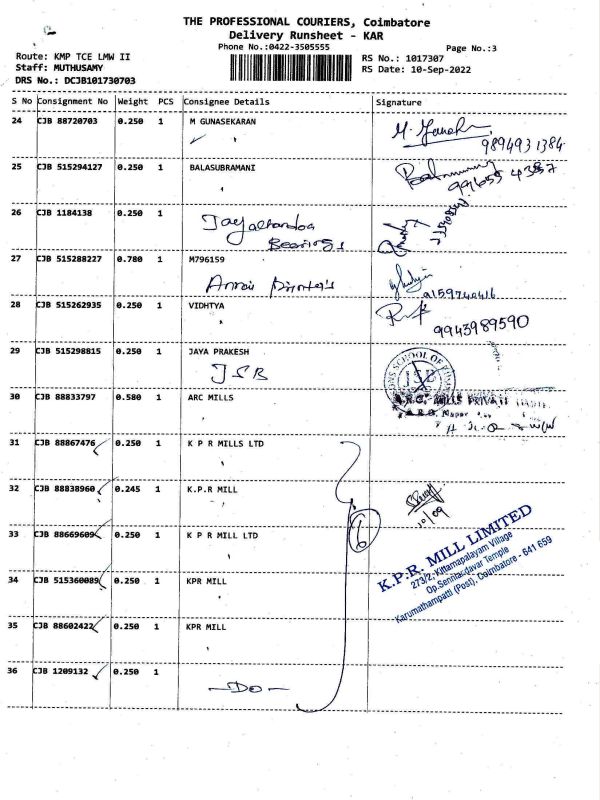 THE PROFESSIONAL COURIERS, Coimbatore
Delivery Runsheet - KAR
Phone No.:0422-3505555
Page No.:3
Route: KMP TCE LMW II
RS No.: 1017307
Staff: MUTHUSAMY
RS Date: 10-Sep-2022
DRS No.: DCJB101730703
S No Consignment No Weight PCS Consignee Details Signature
24 CJB 88720703 0.250 1 M GUNASEKARAN
9894931384
25 CJB 515294127 0.250 1 BALASUBRAMANI
26 CJB 1184138 0.250 1
Bearings
27 CJB 515288227 0.780 1 M796159
9159740416
28 CJB 515262935 0.250 1 VIDHTYA
9943989590
29 CJB 515298815 0.250 1 JAYA PRAKESH
JSB
JSB
30 CJB 88833797 0.580 1 ARC MILLS
31 CJB 88867476 0.250 1 K P R MILLS LTD
32 CJB 88838960 0.245 1 K.P.R MILL
10/09
6
33 CJB 88669609 0.250 1 K P R MILL LTD
K.P.R. MILL LIMITED
273/2, Kittampalayam Village
Karumathampatti (Post), Coimbatore - 641 659
34 CJB 515360089 0.250 1 KPR MILL
35 CJB 88602422 0.250 1 KPR MILL
36 CJB 1209132 0.250 1
-Do-